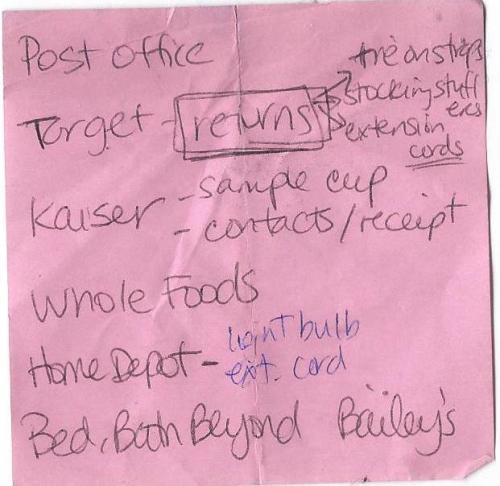 Post office
Target - returns
stocking stuff
ers
extension
cords
Kaiser - sample cup
- contacts/receipt
Whole Foods
Home Depot - light bulb
ext. cord
Bed, Bath Beyond Bailey's